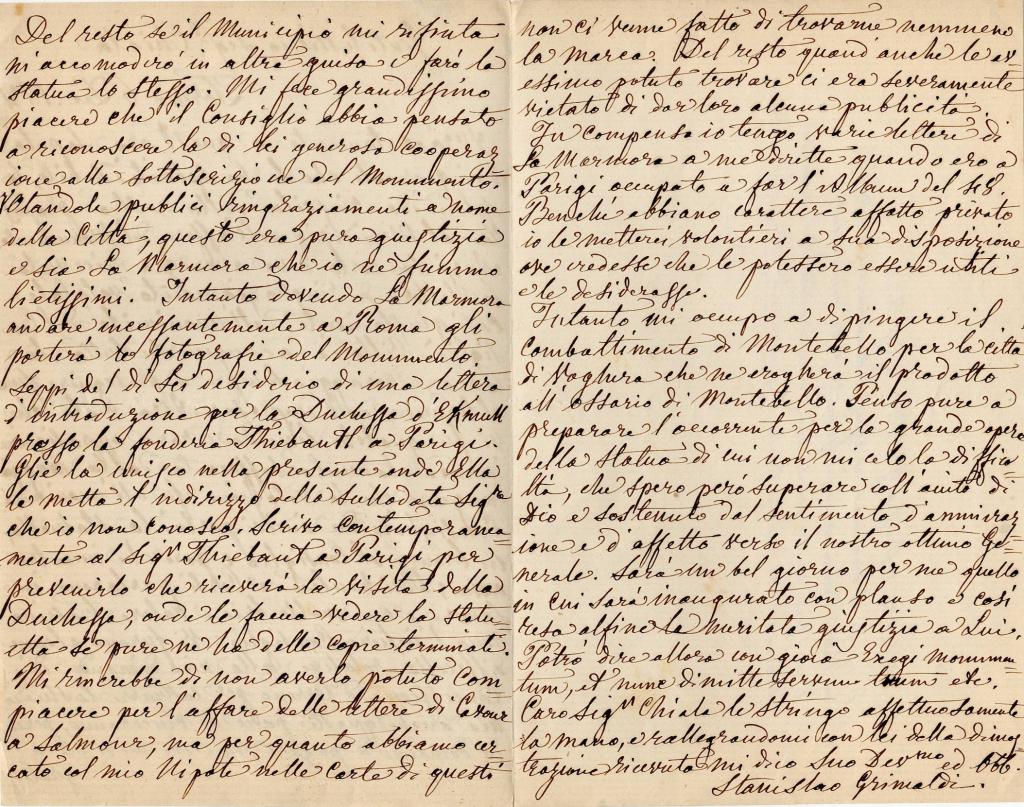 Del resto se il Municipio mi rifiuta
mi accomoderò in altra guisa e farò la
statua lo stesso. Mi fece grandissimo
piacere che il Consiglio abbia pensato
a riconoscere la di lei generosa cooperaz
ione alla sottoscrizione del Monumento.
Votandole publici ringraziamenti a nome
della Città, questo era pura giustizia
e sia La Marmora che io ne fummo
lietissimi. Intanto dovendo La Marmora
andare incessantemente a Roma gli
porterà le fotografie del Monumento
Seppi del di Lei desiderio di una lettera
d'introduzione per la Duchessa d'
presso la fonderia Thiebault a Parigi.
Glie la unisco nella presente onde Ella
le metta l'indirizzo della sullodata Sigra
che io non conosco. Scrivo contemporanea=
mente al Sigr Thiebaut a Parigi per
prevenirlo che riceverà la visita della
Duchessa, onde le faccia vedere la statu=
etta se pure ne ha delle copie terminate.
Mi rincrebbe di non averlo potuto com=
piacere per l'affare delle lettere di Cavour
a Salmour, ma per quanto abbiamo cer=
cato col mio Nipote nelle Carte di questi
non ci venne fatto di trovarne nemmeno
la marca. Del resto quand'anche le av=
essimo potuto trovare ci era severamente
vietato di dar loro alcuna publicità.
In compenso io tengo varie lettere di
La Marmora a me dirette quando ero a
Parigi occupato a far l'Album del
Benchè abbiano carattere affatto privato
io le metterei volontieri a sua disposizione
ove credesse che le potessero essere utili
e le desiderasse.
Intanto mi occupo a dipingere il
Combattimento di Montebello per la città
di Voghera che ne erogherà il prodotto
all'ossario di Montebello. Penso pure a
preparare l'occorrente per la grande opera
della statua di cui non mi celo la diffico=
ltà, che spero però superare coll'aiuto di
Dio e sostenuto dal sentimento d'ammiraz
ione e d'affetto verso il nostro ottimo Ge=
nerale. Sarà un bel giorno per me quello
in cui sarà inaugurato con plauso e così
resa alfine la meritata giustizia a Lui.
Potrò dire allora con gioia Exegi monumen
tum, et nunc dimitte servum tuum etc.
Caro Sigr Chiala le stringo affettuosamente
la mano, e rallegrandomi con Lei della dimos
trazione ricevuta mi dico Suo Devmo ed Obb.
Stanislao Grimaldi.